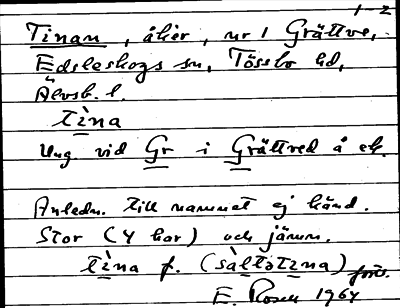 1-2
Tinan, åker, nr 1 Grättve,
Edsleskogs sn, Tössbo hd,
Älvsb. l.
tìna
Ung. vid Gr i Grättved å ek.
Anledn. till namnet ej känd.
Stor (4 har) och jämn.
tìna f. (sàltətìna)
E. Rosen 1964